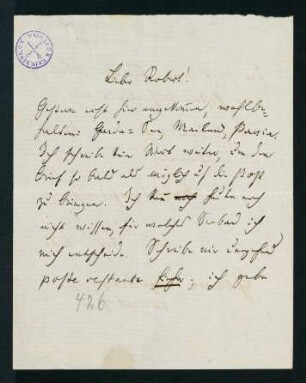 Lieber Robert!
Gestern erst hier angekommen, wohlbe-
halten: Garda-See, Mailand, Pavia.
Ich schreibe kein Wort weiter, um den
Brief so bald als möglich auf die Post
zu bringen. Ich noch
nicht wissen, für welches Seebad ich
mich entscheide. Schreibe mir ungesäumt
poste restante ; ich gebe
426